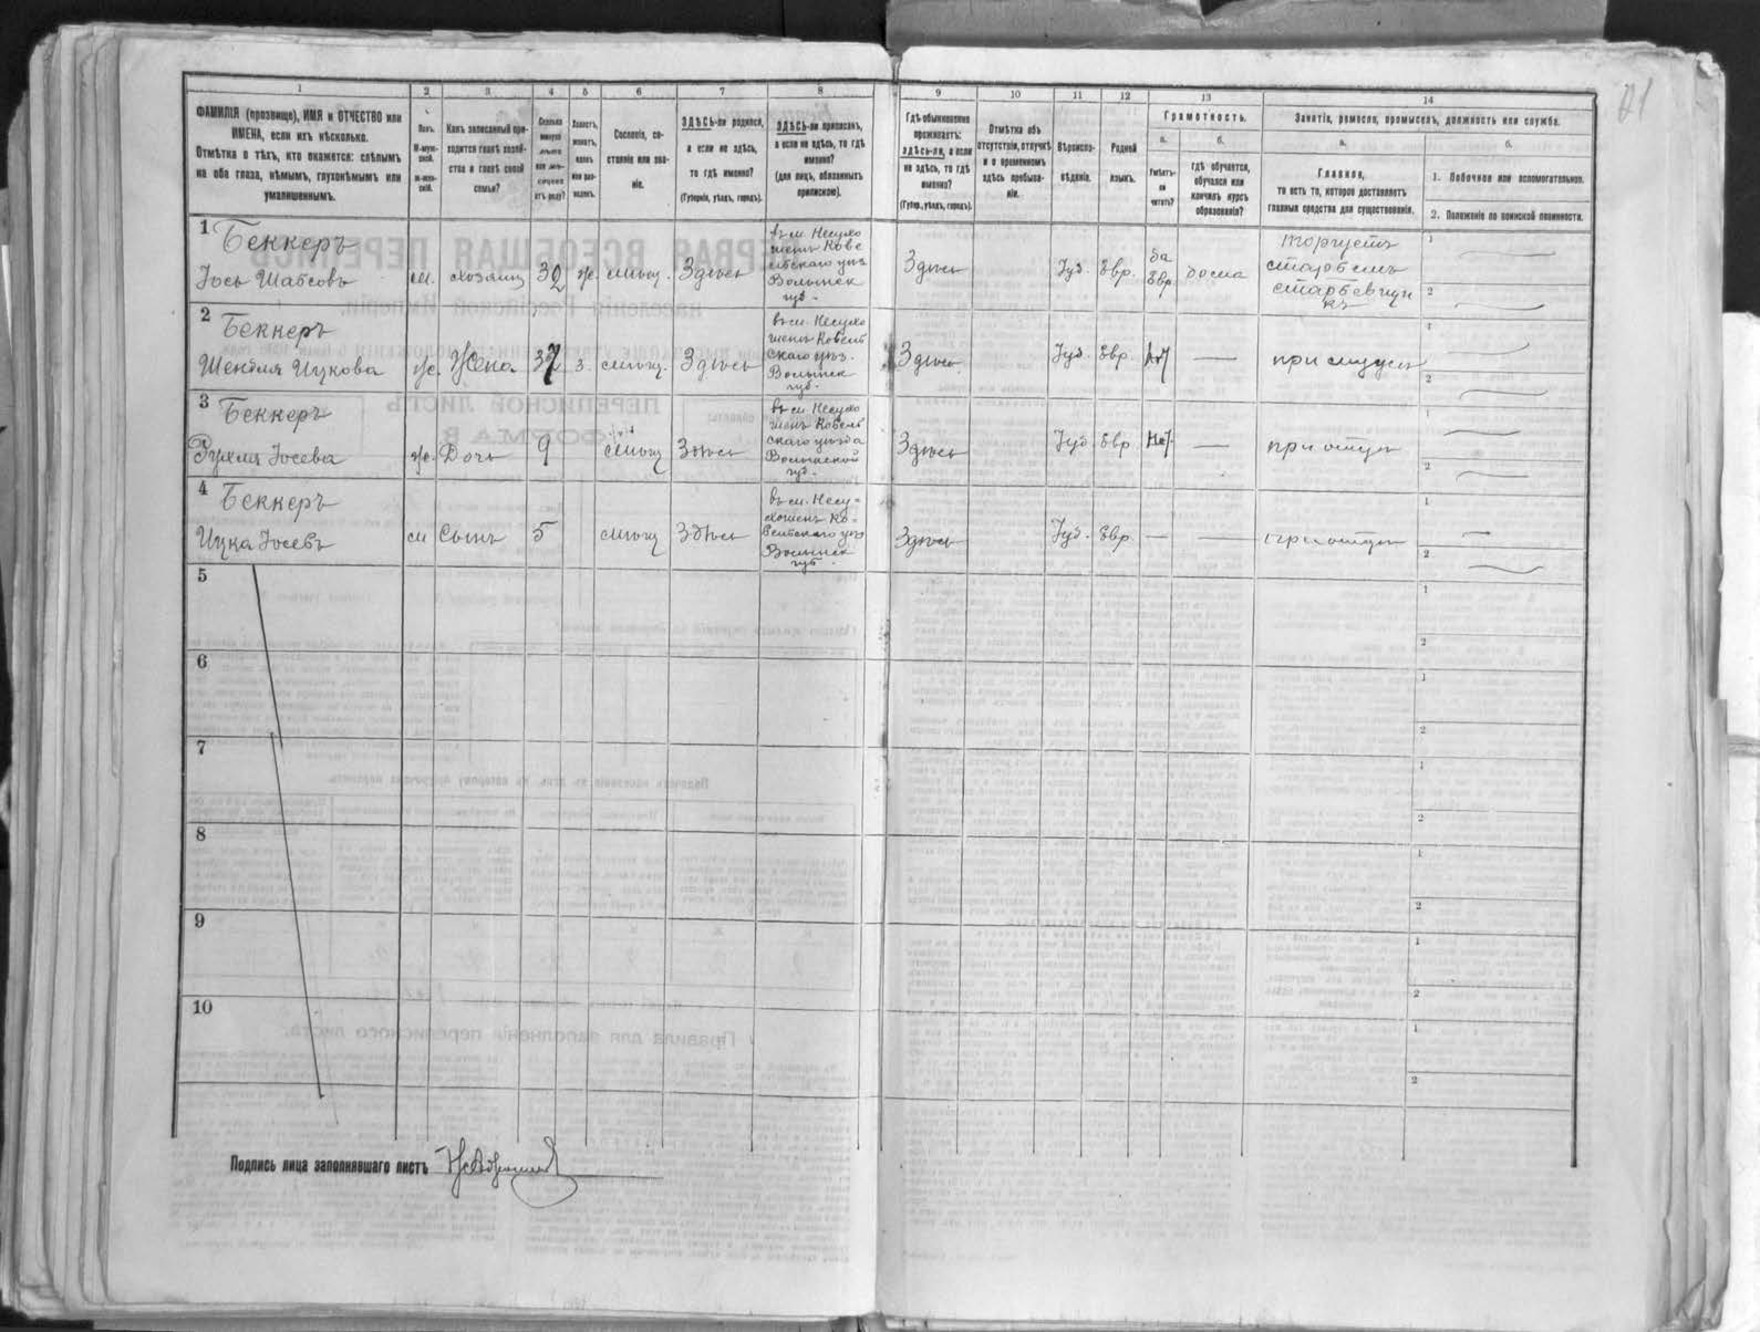 21
1
2
3
4
5
6
7
8
ФАМИЛІЯ (прозвище), ИМЯ и ОТЧЕСТВО или
ИМЕНА, если ихъ нѣсколько.
Отмѣтка о тѣхъ, кто окажется: слѣпымъ
на оба глаза, нѣмымъ, глухонѣмымъ или
умалишеннымъ.
Полъ.
М-муж-
ской.
Ж-жен-
скій.
Какъ записанный при-
ходится главѣ хозяй-
ства и главѣ своей
семьи?
Сколько
минуло
лѣтъ
или мѣ-
сяцевъ
отъ роду?
Холостъ,
женатъ,
вдовъ
или раз-
веденъ.
Сословіе, со-
стояніе или зва-
ніе.
ЗДѢСЬ-ли родился,
а если не здѣсь,
то гдѣ именно?
(Губернія, уѣздъ, городъ).
ЗДѢСЬ-ли приписанъ,
а если не здѣсь, то гдѣ
именно?
(для лицъ, обязанныхъ
припискою).
9
10
11
12
13
14
Гдѣ обыкновенно
проживаетъ:
здѣсь-ли, а если
не здѣсь, то гдѣ
именно?
(Губер., уѣздъ, городъ).
Отмѣтка объ
отсутствіи, отлучкѣ
и о временномъ
здѣсь пребыва-
ніи.
Вѣроиспо-
вѣданіе.
Родной
языкъ.
Грамотность.
а.
Умѣетъ-
ли
читать?
б.
гдѣ обучается,
обучался или
кончилъ курсъ
образованія?
Занятіе, ремесло, промыселъ, должность или служба.
а.
Главное,
то есть то, которое доставляетъ
главныя средства для существованія.
б.
1. Побочное или вспомогательное.
2. Положеніе по воинской повинности.
1
Беккеръ
Іось Шабсовъ
м.
хозяинъ
32
ж.
мѣщ.
Здѣсь
въ м. Несухо
Волынск
губ.
Здѣсь
Іуд.
Евр.
да
Евр
дома
торгуетъ
1
2
2
Беккеръ
Шендля Ицкова
ж.
Жена
37
з.
мѣщ.
Здѣсь
въ м. Несухо
женъ Ковель
скаго уѣз.
Волынск
губ.
Здѣсь
Іуд.
Евр.
нѣт
—
при мужѣ
1
2
3
Беккеръ
Рухля Іосева
ж.
Дочь
9
мѣщ
Здѣсь
въ м. Несухо
женъ Ковель
скаго уѣзда
Волынской
губ.
Здѣсь
Іуд
Евр
нѣт.
—
при отцѣ
1
2
4
Беккеръ
Ицка Іосевъ
м
Сынъ
5
мѣщ
Здѣсь
въ м. Несу-
хоженъ Ко-
вельскаго уѣз
Волынск
губ.
Здѣсь
Іуд.
Евр.
—
—
при отцѣ
1
2
5
1
2
6
1
2
7
1
2
8
1
2
9
1
2
10
1
2
Подпись лица заполнявшаго листъ